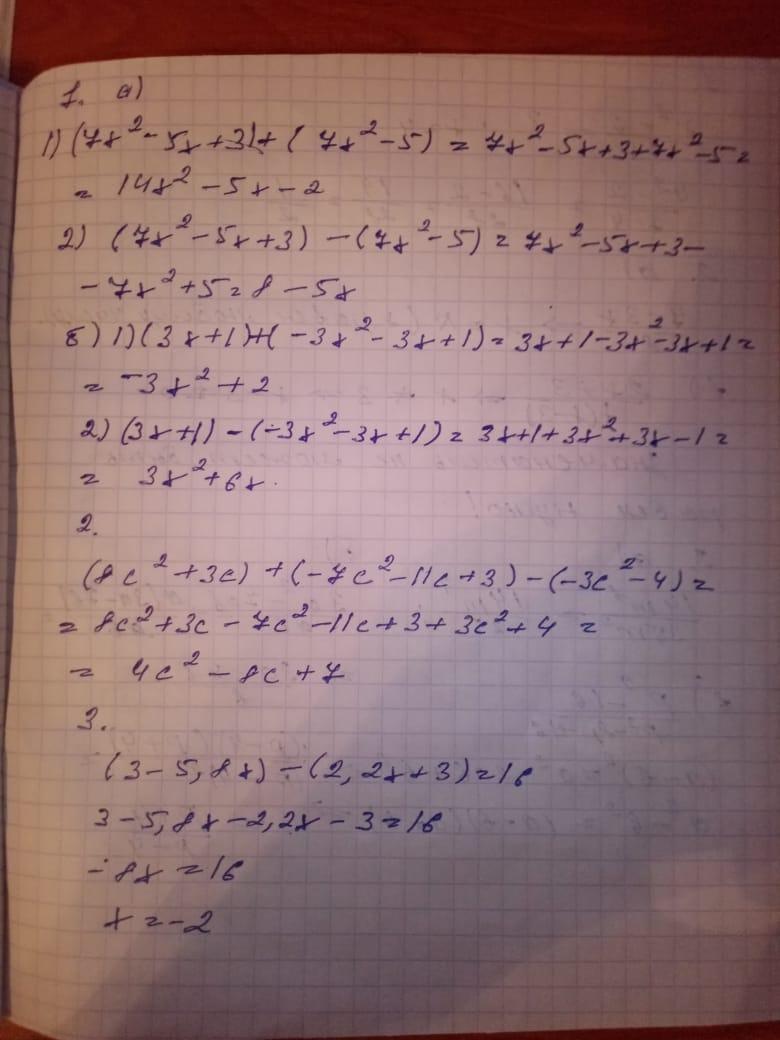 1. а)
1) (7x² - 5x + 3) + (7x² - 5) = 7x² - 5x + 3 + 7x² - 5 =
= 14x² - 5x - 2
2) (7x² - 5x + 3) - (7x² - 5) = 7x² - 5x + 3 -
- 7x² + 5 = 8 - 5x
б) 1) (3x + 1) + (-3x² - 3x + 1) = 3x + 1 - 3x² - 3x + 1 =
= -3x² + 2
2) (3x + 1) - (-3x² - 3x + 1) = 3x + 1 + 3x² + 3x - 1 =
= 3x² + 6x.
2.
(8c² + 3c) + (-7c² - 11c + 3) - (-3c² - 4) =
= 8c² + 3c - 7c² - 11c + 3 + 3c² + 4 =
= 4c² - 8c + 7
3.
(3 - 5,8x) - (2,2x + 3) = 16
3 - 5,8x - 2,2x - 3 = 16
- 8x = 16
x = -2